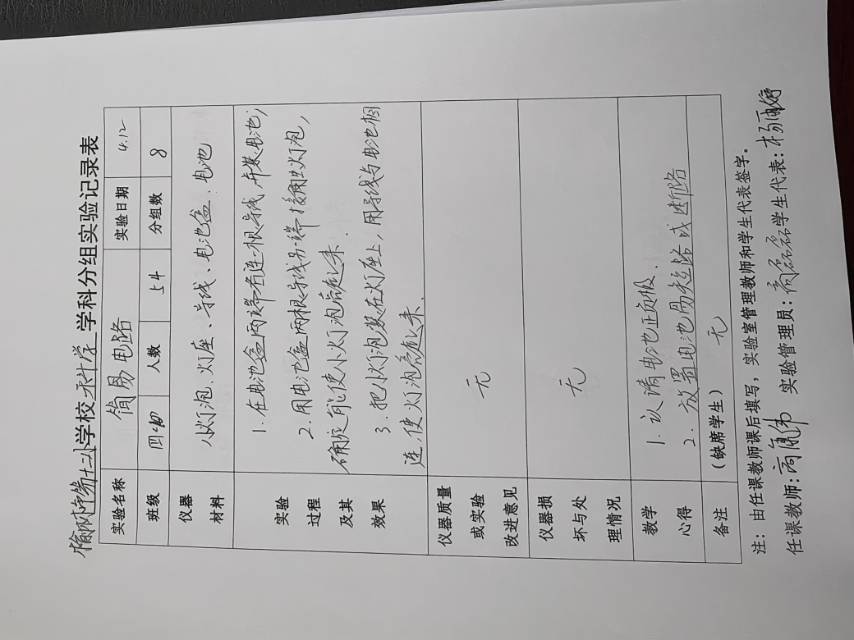 榆阳区第十二小学校 科学 学科分组实验记录表
实验名称 简易电路 实验日期 4.12
班级 四(4) 人数 54 分组数 8
仪器材料 小灯泡、灯座、导线、电池盒、电池
实验过程及其效果
1. 在电池盒两端各连一根导线,并装电池;
2. 用电池盒两根导线另一端接触小灯泡,
确定能使小灯泡亮起来.
3. 把小灯泡装在灯座上,用导线与电池相
连,使灯泡亮起来.
仪器质量或实验改进意见 无
仪器损坏与处理情况 无
教学心得
1. 认清电池正负极.
2. 放置电池勿短路或断路
备注 (缺席学生) 无
注:由任课教师课后填写,实验室管理教师和学生代表签字。
任课教师: 实验管理员:高磊磊 学生代表:杨